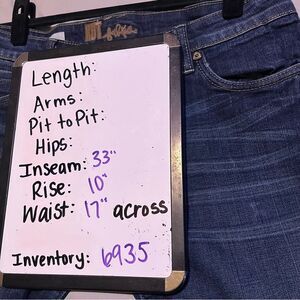 Length:
Arms:
Pit to Pit:
Hips:
Inseam: 33"
Rise: 10"
Waist: 17" across
Inventory: 6935